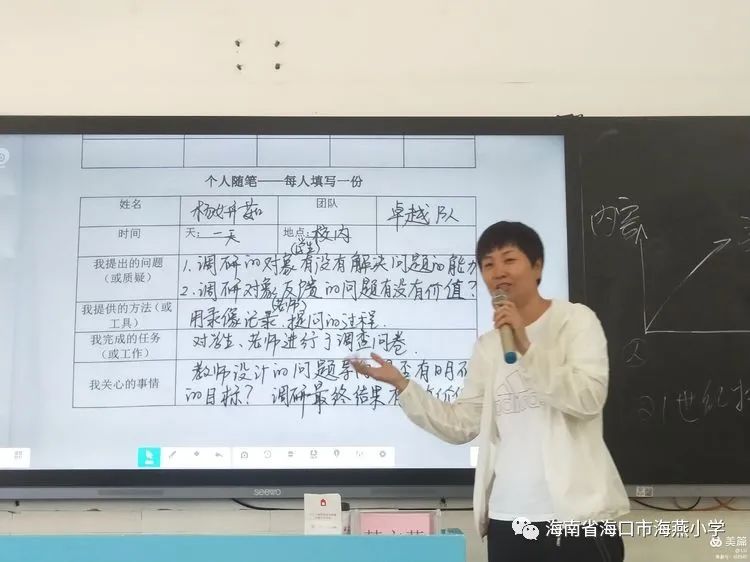 个人随笔——每人填写一份
姓名
杨妍茹
团队
卓越队
时间
天：一天
地点：校内
(学生)
我提出的问题
（或质疑）
1.调研的对象有没有解决问题的能力
2.调研对象反馈的问题有没有价值？
(老师)
我提供的方法（或
工具）
用录像记录、提问的过程.
我完成的任务
（或工作）
对学生、老师进行了调查问卷.
我关心的事情
教师设计的问题导
是否有明
的目标？ 调研最终结果
内容
21世纪
seewo
adidas
海南省海口市海燕小学
美篇